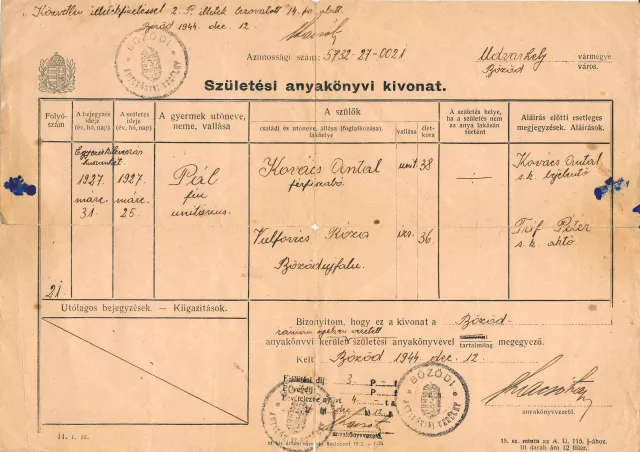 Közvetlen illetékfizetéssel 2 P. illeték lerovatott 14. fo. alatt.
Bözöd 1944 dec. 12.
BÖZÖDI
ANYAKÖNYVI KERÜLET
Azonossági szám: 5732-27-0021
Udvarhely vármegye
Bözöd város.
Születési anyakönyvi kivonat.
Folyó-
szám
A bejegyzés
ideje
(év, hó, nap)
A születés
ideje
(év, hó, nap)
A gyermek utóneve,
neme, vallása
A szülők
családi és utóneve, állása (foglalkozása),
lakhelye
vallása
élet-
kora
A születés helye,
ha a születés nem
az anya lakásán
történt
Aláírás előtti esetleges
megjegyzések. Aláírások.
21
1927
márc.
31.
1927
márc.
25.
Pál
fiu
unitárius.
Kovács Antal
férfiszabó
unit.
38
Vulfovics Róza
36.
Bözödujfalu.
—
Kovács Antal
s. k. bejelentő
Péter
s. k.
Utólagos bejegyzések. — Kiigazítások.
Bizonyítom, hogy ez a kivonat a Bözöd
román nyelven vezetett
anyakönyvi kerület születési anyakönyvével tartalmilag megegyező.
Kelt Bözöd 1944 dec. 12.
Kiállítási díj 3 P
4
anyakönyvvezető.
BÖZÖDI
ANYAKÖNYVI KERÜLET
anyakönyvvezető.
11. r. sz.
15. sz. minta az A. U. 115. §-ához.
10 darab ára 12 fillér.